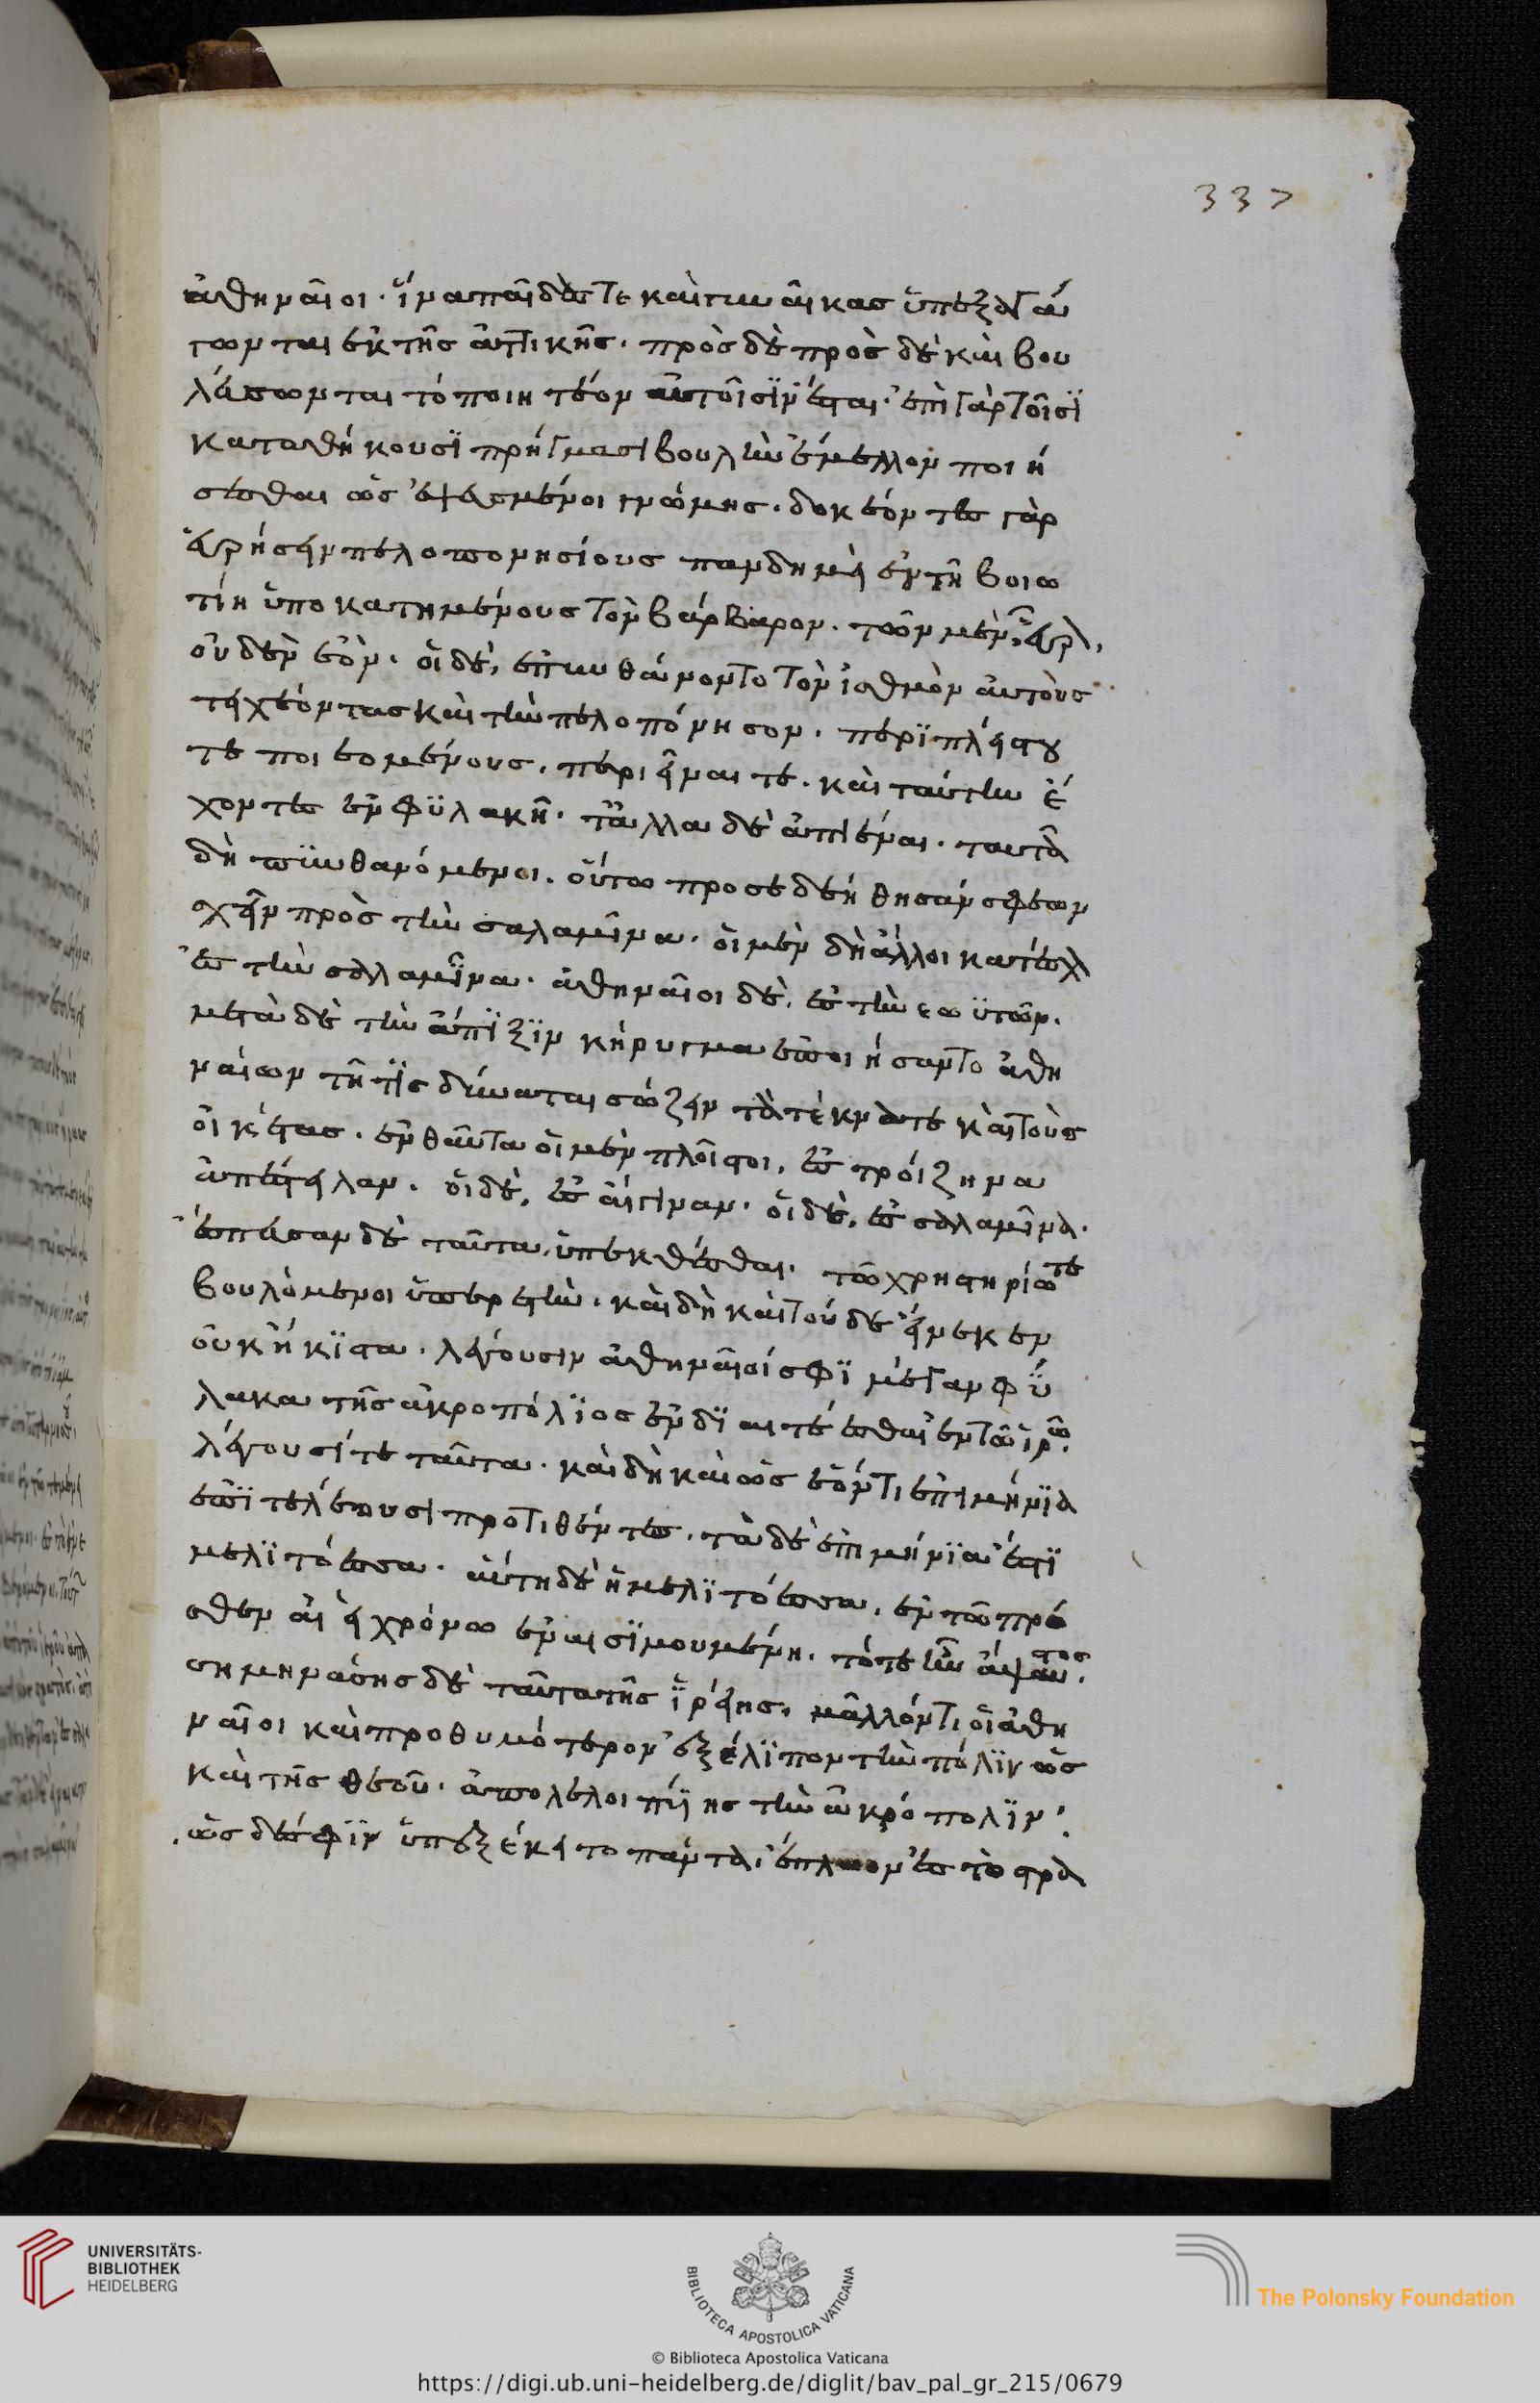 ἀθηναῖοι· ἵνα παῖδάς τε καὶ γυναῖκας ὑπεξαγά
γωνται ἐκ τῆς ἀττικῆς· πρὸς δὲ πρὸς δὲ καὶ βου
λεύσωνται τὸ ποιητέον αὐτοῖσϊν ἔσται· ἐπὶ γὰρ τοῖσϊ
κατοθήκουσϊ πρήγμασι βουλὴν ἔμελλον ποιή
σεσθαι ὡς ἐψευσμένοι γνώμης· δοκέοντες γὰρ
εὑρήσειν πελοπονησίους πανδημεὶ ἐν τῆ βοιω
τίη ὑποκατημένους τὸν βάρβαρον. τῶν μὲν εὗρον,
οὐδὲν ἐὸν· οἱ δὲ, ἐπυνθάνοντο τὸν ἰσθμὸν αὐτοὺς
τειχέοντας καὶ τὴν πελοπόνησον. περϊ πλείστου
τε ποιεομένους. περιεῖναι τε. καὶ ταύτην ἔ
χοντες ἐν φϋλακῆ· τἄλλα δὲ ἀπιέναι. ταῦτα
δὴ πϋνθανόμενοι. οὕτω προσεδεήθησάν σφεων
σχεῖν πρὸς τὴν σαλαμῖνα. οἱ μὲν δὴ ἄλλοι κατέσχον
ἐς τὴν σαλαμῖνα· ἀθηναῖοι δὲ, ἐς τὴν εωϋτῶν.
μετὰ δὲ τὴν ἄπϊξϊν κήρυγμα ἐποιήσαντο ἀθη
ναίων τῆ τϊς δύναται σώζειν τὰ τέκνα τε καὶ τοὺς
οἰκέτας. ἐνθαῦτα οἱ μὲν πλεῖστοι, ἐς τροιζῆνα
ἀπέστειλαν. οἱ δὲ, ἐς αἴγιναν· οἱ δὲ, ἐς σαλαμῖνα.
ἔσπευσαν δὲ ταῦτα ὑπεκθέσθαι. τῶ χρηστηρίω τε
βουλόμενοι ὑπερετεῖν. καὶ δὴ καὶ τοῦδε εἵνεκεν
οὐκ ἥκϊστα. λέγουσιν ἀθηναῖοί σφϊ μέγαν φύ
λακα τῆς ἀκροπόλϊος ἐνδϊαιτέεσθαι ἐν τῶ ἱρῶ.
λέγουσί τε ταῦτα. καὶ δὴ καὶ ὡς ἐόντι ἐπιμήνϊα
ἐπϊτελέουσι προτιθέντες. τὰ δὲ ἐπιμήνϊα ἔστϊ
μελϊτόεσσα. αὕτη δὲ ἡ μελϊτόεσσα, ἐν τῶ πρό
σθεν αἰεὶ χρόνω ἐναισϊμουμένη. τότε ἦν ἄψαυτος.
σημηνάσης δὲ ταῦτα τῆς ἱρείης, μᾶλλόν τι οἱ ἀθη
ναῖοι καὶ προθυμότερον ἐξέλϊπον τὴν πόλϊν ὡς
καὶ τῆς θεοῦ. ἀπολελοιπϋίης τὴν ἀκρόπολϊν·
ὡς δέ σφϊν ὑπεξέκειτο πάντα, ἔπλωον ἐς τὸ στρα